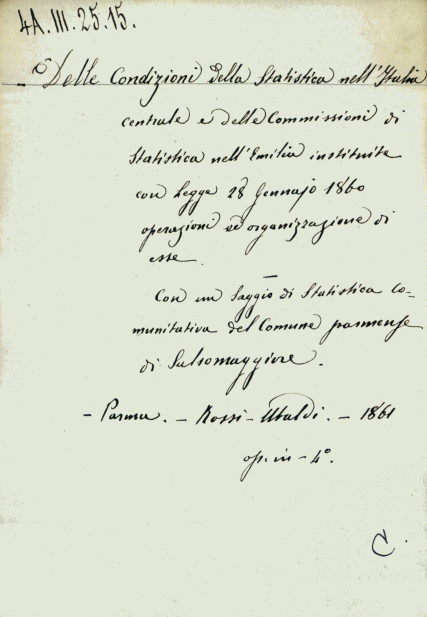 4A. III. 25. 15.
Delle Condizioni della Statistica nell'Italia
centrale e delle Commissioni di
Statistica nell'Emilia instituite
con Legge 28 Gennajo 1860
operazioni ed organizzazione di
esse
Con un Saggio di Statistica Co-
munitativa del Comune parmense
di Salsomaggiore.
- Parma. - Rossi-Ubaldi. - 1861
op. in - 4°.
C.